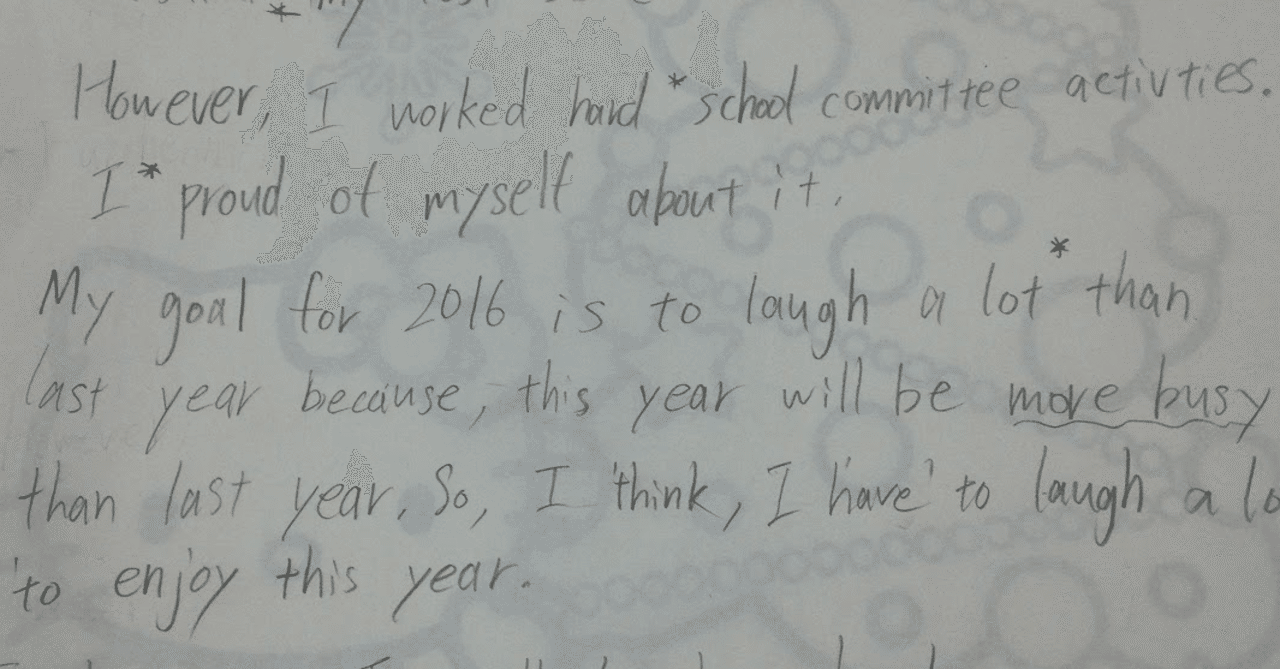 * my
However, I worked hard * school committee activties.
I * proud of myself about it.
My goal for 2016 is to laugh a lot * than
last year because, this year will be more busy
than last year. So, I think, I have to laugh a lo
to enjoy this year.